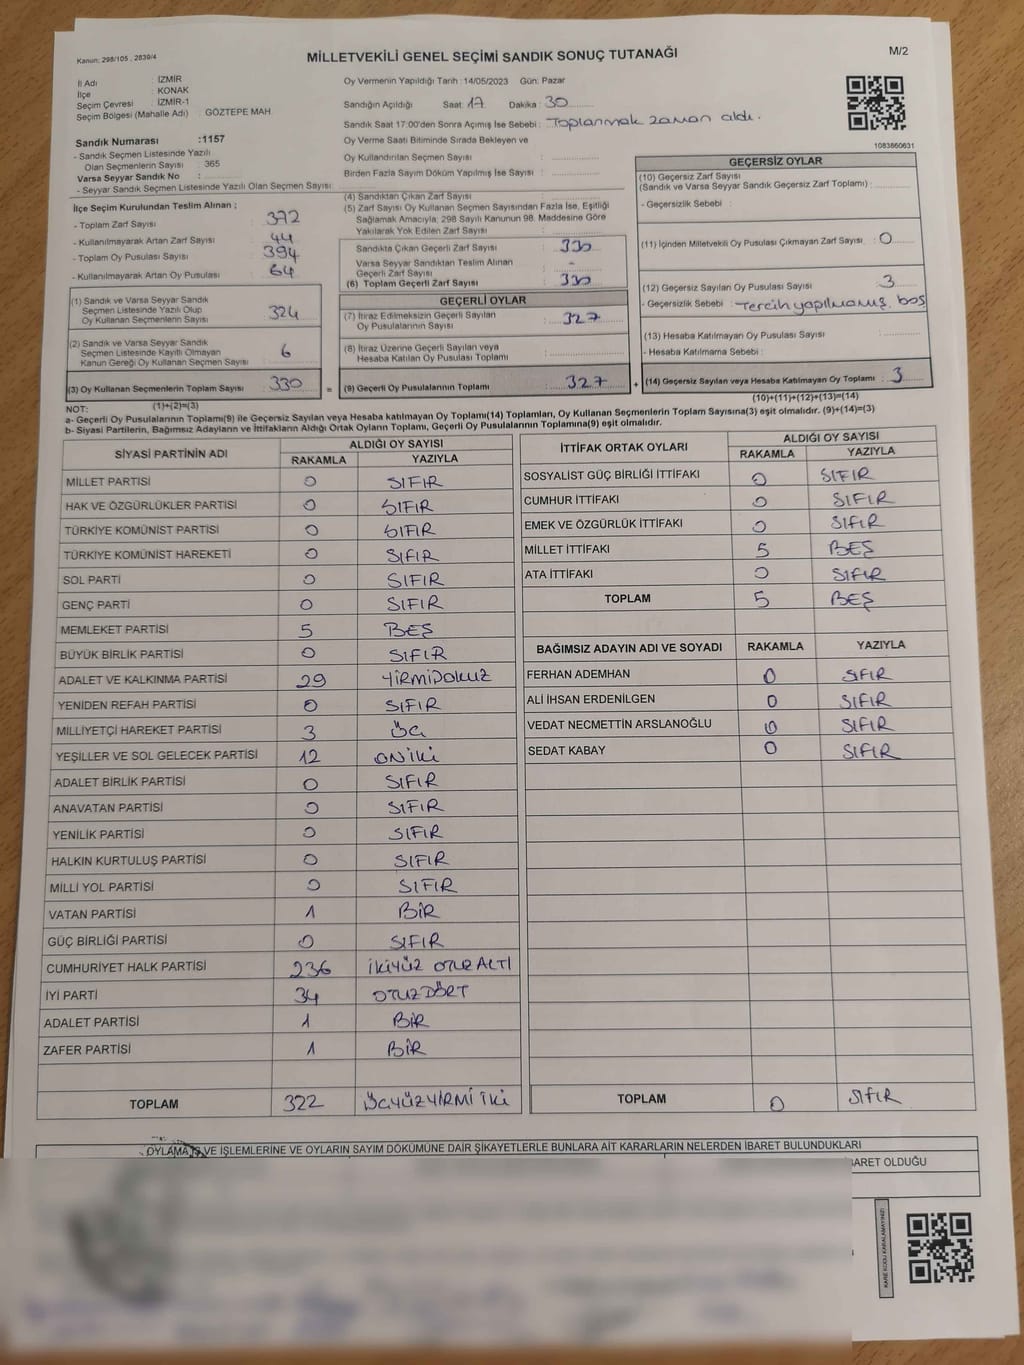 Kanun: 298/105 , 2839/4
MİLLETVEKİLİ GENEL SEÇİMİ SANDIK SONUÇ TUTANAĞI
M/2
İl Adı : İZMİR
İlçe : KONAK
Seçim Çevresi : İZMİR-1
Seçim Bölgesi (Mahalle Adı) : GÖZTEPE MAH.
Sandık Numarası :1157
- Sandık Seçmen Listesinde Yazılı
Olan Seçmenlerin Sayısı : 365
Varsa Seyyar Sandık No :
- Seyyar Sandık Seçmen Listesinde Yazılı Olan Seçmen Sayısı:
Oy Vermenin Yapıldığı Tarih : 14/05/2023 Gün: Pazar
Sandığın Açıldığı Saat: 17 Dakika : 30
Sandık Saat 17:00'den Sonra Açımış İse Sebebi : Toplanmak zaman aldı.
Oy Verme Saati Bitiminde Sırada Bekleyen ve
Oy Kullandırılan Seçmen Sayısı :
Birden Fazla Sayım Döküm Yapılmış İse Sayısı :
1083860631
İlçe Seçim Kurulundan Teslim Alınan ;
- Toplam Zarf Sayısı : 372
- Kullanılmayarak Artan Zarf Sayısı : 44
- Toplam Oy Pusulası Sayısı : 394
- Kullanılmayarak Artan Oy Pusulası : 64
(1) Sandık ve Varsa Seyyar Sandık
Seçmen Listesinde Yazılı Olup
Oy Kullanan Seçmenlerin Sayısı : 324
(2) Sandık ve Varsa Seyyar Sandık
Seçmen Listesinde Kayıtlı Olmayan
Kanun Gereği Oy Kullanan Seçmen Sayısı : 6
(3) Oy Kullanan Seçmenlerin Toplam Sayısı : 330 =
(1)+(2)=(3)
(4) Sandıktan Çıkan Zarf Sayısı :
(5) Zarf Sayısı Oy Kullanan Seçmen Sayısından Fazla İse, Eşitliği
Sağlamak Amacıyla; 298 Sayılı Kanunun 98. Maddesine Göre
Yakılarak Yok Edilen Zarf Sayısı :
Sandıkta Çıkan Geçerli Zarf Sayısı : 330
Varsa Seyyar Sandıktan Teslim Alınan
Geçerli Zarf Sayısı : -
(6) Toplam Geçerli Zarf Sayısı : 330
GEÇERLİ OYLAR
(7) İtiraz Edilmeksizin Geçerli Sayılan
Oy Pusulalarının Sayısı : 327
(8) İtiraz Üzerine Geçerli Sayılan veya
Hesaba Katılan Oy Pusulası Toplamı :
(9) Geçerli Oy Pusulalarının Toplamı : 327 +
GEÇERSİZ OYLAR
(10) Geçersiz Zarf Sayısı
(Sandık ve Varsa Seyyar Sandık Geçersiz Zarf Toplamı) :
- Geçersizlik Sebebi :
(11) İçinden Milletvekili Oy Pusulası Çıkmayan Zarf Sayısı : 0
(12) Geçersiz Sayılan Oy Pusulası Sayısı : 3
- Geçersizlik Sebebi : Tercih yapılmamış, boş
(13) Hesaba Katılmayan Oy Pusulası Sayısı :
- Hesaba Katılmama Sebebi :
(14) Geçersiz Sayılan veya Hesaba Katılmayan Oy Toplamı : 3
(10)+(11)+(12)+(13)=(14)
NOT:
a- Geçerli Oy Pusulalarının Toplamı(9) ile Geçersiz Sayılan veya Hesaba katılmayan Oy Toplamı(14) Toplamları, Oy Kullanan Seçmenlerin Toplam Sayısına(3) eşit olmalıdır. (9)+(14)=(3)
b- Siyasi Partilerin, Bağımsız Adayların ve İttifakların Aldığı Ortak Oyların Toplamı, Geçerli Oy Pusulalarının Toplamına(9) eşit olmalıdır.
SİYASİ PARTİNİN ADI ALDIĞI OY SAYISI
RAKAMLA YAZIYLA
MİLLET PARTİSİ 0 SIFIR
HAK VE ÖZGÜRLÜKLER PARTİSİ 0 SIFIR
TÜRKİYE KOMÜNİST PARTİSİ 0 SIFIR
TÜRKİYE KOMÜNİST HAREKETİ 0 SIFIR
SOL PARTİ 0 SIFIR
GENÇ PARTİ 0 SIFIR
MEMLEKET PARTİSİ 5 BEŞ
BÜYÜK BİRLİK PARTİSİ 0 SIFIR
ADALET VE KALKINMA PARTİSİ 29 YİRMİDOKUZ
YENİDEN REFAH PARTİSİ 0 SIFIR
MİLLİYETÇİ HAREKET PARTİSİ 3 ÜÇ
YEŞİLLER VE SOL GELECEK PARTİSİ 12 ONİKİ
ADALET BİRLİK PARTİSİ 0 SIFIR
ANAVATAN PARTİSİ 0 SIFIR
YENİLİK PARTİSİ 0 SIFIR
HALKIN KURTULUŞ PARTİSİ 0 SIFIR
MİLLİ YOL PARTİSİ 0 SIFIR
VATAN PARTİSİ 1 BİR
GÜÇ BİRLİĞİ PARTİSİ 0 SIFIR
CUMHURİYET HALK PARTİSİ 236 İKİYÜZ OTUZALTI
İYİ PARTİ 34 OTUZDÖRT
ADALET PARTİSİ 1 BİR
ZAFER PARTİSİ 1 BİR
TOPLAM 322 ÜÇYÜZYİRMİ İKİ
İTTİFAK ORTAK OYLARI ALDIĞI OY SAYISI
RAKAMLA YAZIYLA
SOSYALİST GÜÇ BİRLİĞİ İTTİFAKI 0 SIFIR
CUMHUR İTTİFAKI 0 SIFIR
EMEK VE ÖZGÜRLÜK İTTİFAKI 0 SIFIR
MİLLET İTTİFAKI 5 BEŞ
ATA İTTİFAKI 0 SIFIR
TOPLAM 5 BEŞ
BAĞIMSIZ ADAYIN ADI VE SOYADI RAKAMLA YAZIYLA
FERHAN ADEMHAN 0 SIFIR
ALİ İHSAN ERDENİLGEN 0 SIFIR
VEDAT NECMETTİN ARSLANOĞLU 0 SIFIR
SEDAT KABAY 0 SIFIR
TOPLAM 0 SIFIR
OYLAMA VE İŞLEMLERİNE VE OYLARIN SAYIM DÖKÜMÜNE DAİR ŞİKAYETLERLE BUNLARA AİT KARARLARIN NELERDEN İBARET BULUNDUKLARI
BARET OLDUĞU
KARE KODU KARALAMAYINIZ!